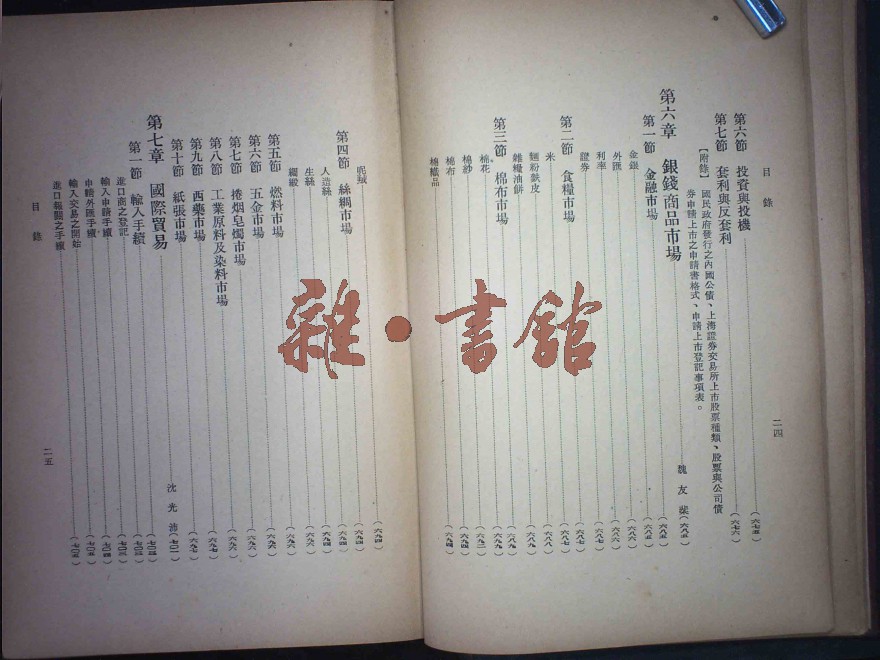 目錄
二四
第六節 投資與投機(六七五)
第七節 套利與反套利(六七六)
【附錄】 國民政府發行之內國公債、上海證券交易所上市股票種類、股票與公司債
券申請上市之申請書格式、申請上市登記事項表。
第六章 銀錢商品市場 魏友棐(六八五)
第一節 金融市場(六八五)
金銀(六八五)
外匯(六八六)
利率(六八七)
證券(六八七)
第二節 食糧市場(六八七)
米(六八八)
麵粉麩皮(六八八)
雜糧油餅(六八九)
第三節 棉布市場
棉花
棉紗(六九二)
棉布(六九四)
棉織品(六九四)
呢絨(六九四)
第四節 絲綢市場(六九四)
人造絲(六九四)
生絲(六九六)
綢緞(六九六)
第五節 燃料市場(六九六)
第六節 五金市場(六九六)
第七節 捲烟皂燭市場(六九六)
第八節 工業原料及染料市場(六九七)
第九節 西藥市場(六九七)
第十節 紙張市場
第七章 國際貿易 沈光沛(七〇一)
第一節 輸入手續
進口商之登記
輸入申請手續
申請外匯手續
輸入交易之開始(七〇五)
進口報關之手續
目錄
二五
雜•書館